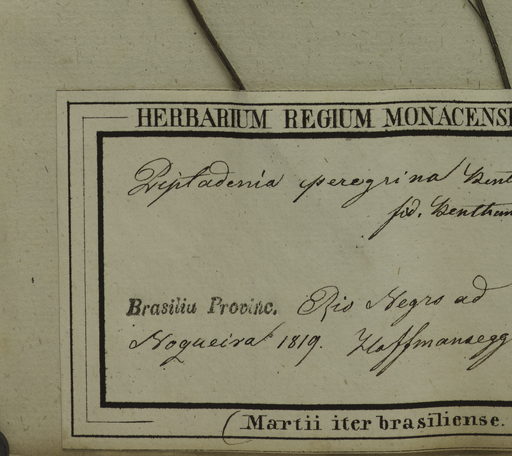 HERBARIUM REGIUM MONACENS
Piptadenia peregrina Bent
fid. Bentham
Brasilia Provinc. Rio Negro ad
Nogueira 1819. Hoffmansegg
Martii iter brasiliense.